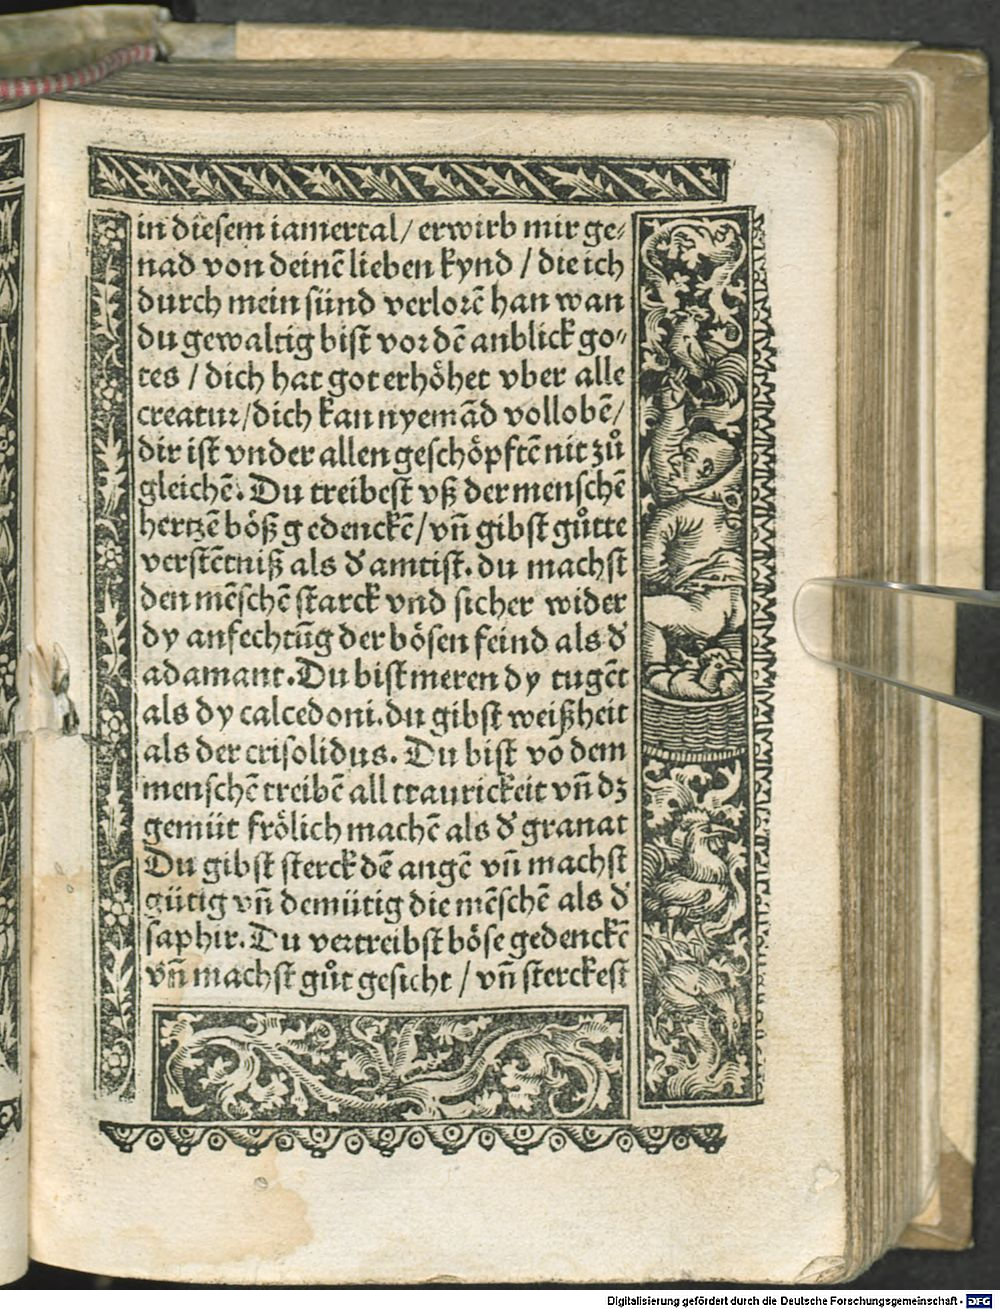 in diesem iamertal/ erwirb mir ge⸗
nad von deinē lieben kynd / die ich
durch mein sünd verlorē han wan
du gewaltig bist vor dē anblick go⸗
tes / dich hat got erhöhet vber alle
creatur/dich kan nyemād vollobē/
dir ist vnder allen geschöpftē nit zů
gleichē. Du treibest vß der menschē
hertzē böß gedenckē/vn̄ gibst gůtte
verstētniß als d' amtist. du machst
den mēschē starck vnd sicher wider
dy anfechtūg der bösen feind als d'
adamant. Du bist meren dy tugēt
als dy calcedoni. du gibst weißheit
als der crisolidus. Du bist vō dem
menschē treibē all traurickeit vn̄ dz
gemüt frölich machē als d' granat
Du gibst sterck dē augē vn̄ machst
gütig vn̄ demütig die mēschē als d'
saphir. Du vertreibst böse gedenckē
vn̄ machst gůt gesicht / vn̄ sterckest
Digitalisierung gefördert durch die Deutsche Forschungsgemeinschaft - DFG